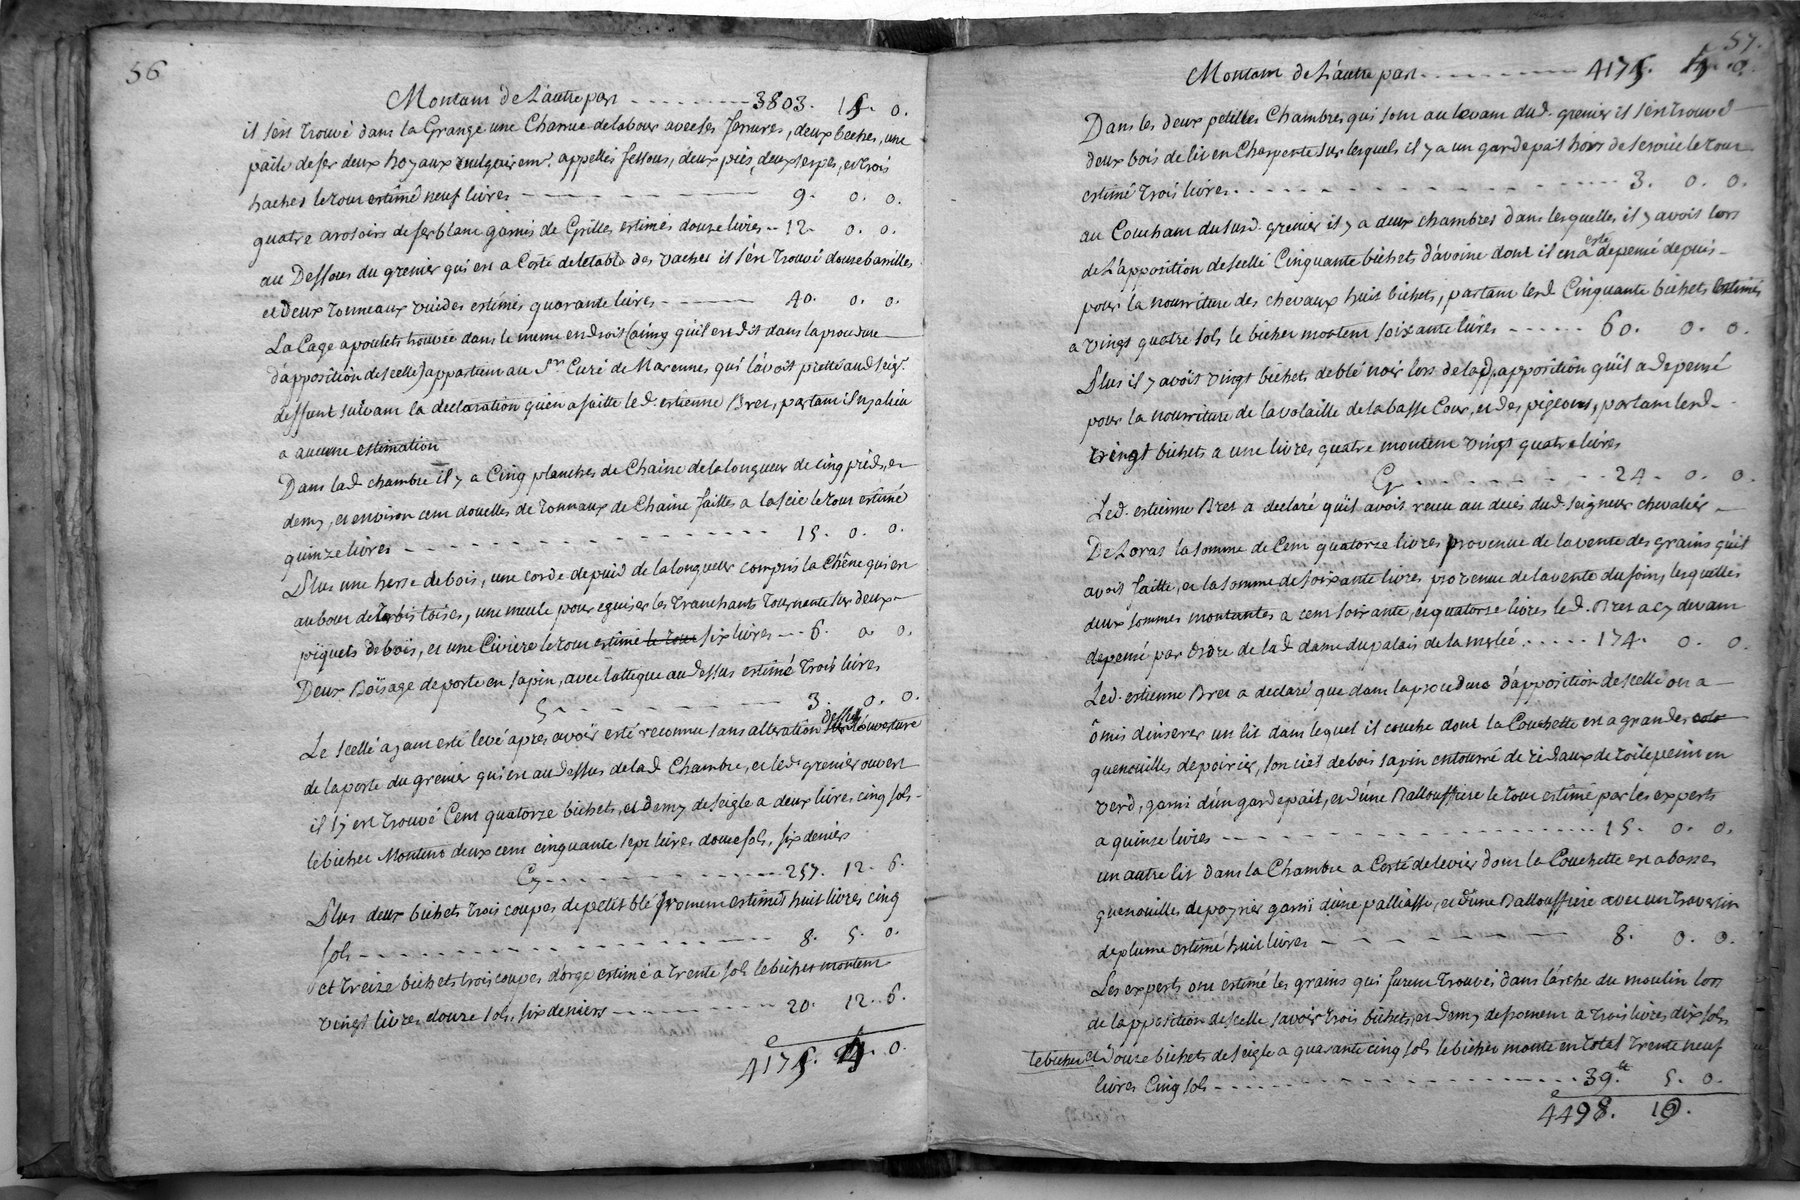 56
Montant de L'autre part - - - - - - - - 3803. 15. 0.
il s'est trouvé dans la Grange une Charrue de labour avec ses ferrures, deux beches, une
paile de fer deux hoyaux vulgairemt. appellés fessous, deux piës, deux serpes, et trois
haches le tout estimé neuf livres - - - - - - - - 9. 0. 0.
quatre arosoirs de ferblanc garnis de Grilles estimés douze livres - - 12. 0. 0.
au Dessous du grenier qui est a Costé de letable des vaches il s'est trouvé douze barilles
et deux tonneaux vuides estimés quarante livres - - - - - 40. 0. 0.
La Cage a poulets trouvée dans le meme endroit (ainsy quil est dit dans la procedure
d'apposition de scellé) appartient au Sr. Curé de Marennes qui l'avoit pretté aud seigr.
deffunt suivant la declaration qu'en a faitte led. estienne Bret, partant il ny a lieu
a aucune estimation
Dans lad. chambre il y a Cinq planches de Chaine de la longueur de cinq pieds, et
demy, et environ cent douelles de tonnaux de Chaine faittes a la scie le tout estimé
quinze livres - - - - - - - - - - - - - - 15. 0. 0.
Plus une herse de bois, une corde de puid de la longueur compris la Chêne qui est
au bout de trois toises, une meule pour eguiser les tranchants tournante sur deux
piquets de bois, et une Civiere le tout estimé le tout six livres - - - 6. 0. 0.
Deux Boïsage de porte en sapin, avec l'atteque au dessus estimé trois livres
Cy - - - - - - - - - - 3. 0. 0.
Le scellé ayant esté levé apres avoir esté reconnu sans alteration dessus l'ouverture
de la porte du grenier qui est au dessus de lad Chambre, et led. grenier ouvert
il s'y est trouvé Cent quatorze bichets, et demy de seigle a deux livres cinq sols
le bichet Montent deux cent cinquante sept livres douze sols, six deniers
Cy - - - - - - - - - - - 257. 12. 6.
Plus deux bichets trois coupes de petit blé froment estimés huit livres cinq
sols - - - - - - - - - - - - - - 8. 5. 0.
et treize bichets trois coupes d'orge estimé a trente sols le bichet montent
vingt livres douze sols, six deniers - - - - - - - - 20. 12. 6.
4175. 5. 0.
57.
Montant de L'autre part - - - - - - - - 4175. 5. 0.
Dans les deux petittes Chambres qui sont au levant dud. grenier il s'est trouvé
deux bois de lit en Charpente sur lesquels il y a un gardepait hors de service le tout
estimé trois livres - - - - - - - - - - - - - 3. 0. 0.
au Couchant du susd. grenier il y a deux chambres dans lesquelles il y avoit lors
de L'apposition de scellé Cinquante bichets d'avoine dont il en a esté depensé depuis
pour la nourriture des chevaux huit bichets, partant lesd. Cinquante bichets estimés
a vingt quatre sols le bichet montent soixante livres - - - - - - 60. 0. 0.
Plus il y avoit vingt bichets de blé noir lors de lad. apposition qu'il a depensé
pour la nourriture de la volaille de la basse Cour, et des pigeons, partant lesd.
vingt bichets a une livres quatre montent vingt quatre livres
Cy - - - - - - - - - - 24. 0. 0.
Led. estienne Bret a declaré qu'il avoit receu au decés dud. seigneur chevalier
De Loras la somme de Cent quatorze livres provenue de la vente des grains qu'il
avoit faitte, et la somme de soixante livres provenue de la vente du foin, lesquelles
deux sommes montantes a cent soixante, et quatorze livres led. Bret a cy devant
depensé par ordre de lad dame du palais de la myslié - - - - - - 174. 0. 0.
Led. estienne Bret a declaré que dans la procedure d'apposition de scellé on a
ômis d'inserer un lit dans lequel il couche dont la Couchette est a grandes colo
quenouilles de poirier, son ciel de bois sapin entourré de rideaux de toile peint en
verd, garni d'un gardepait, et d'une Balloussfiere le tout estimé par les experts
a quinze livres - - - - - - - - - - - - - - - - 15. 0. 0.
un autre lit dans la Chambre a Costé de levier dont la Couchette est a basses
quenouilles de poyrier garni d'une palliasse, et d'une Balloussfiere avec un traversin
de plume estimé huit livres - - - - - - - - 8. 0. 0.
Les experts ont estimé les grains qui furent trouvés dans l'arche du moulin lors
de l'apposition de scellé savoir trois bichets, et demy de froment a trois livres dix sols
le bichet et Douze bichets de seigle a quarante cinq sols le bichet monte en total trente neuf
livres Cinq sols - - - - - - - - - - - - - 39.lt 5. 0.
4498. 10.